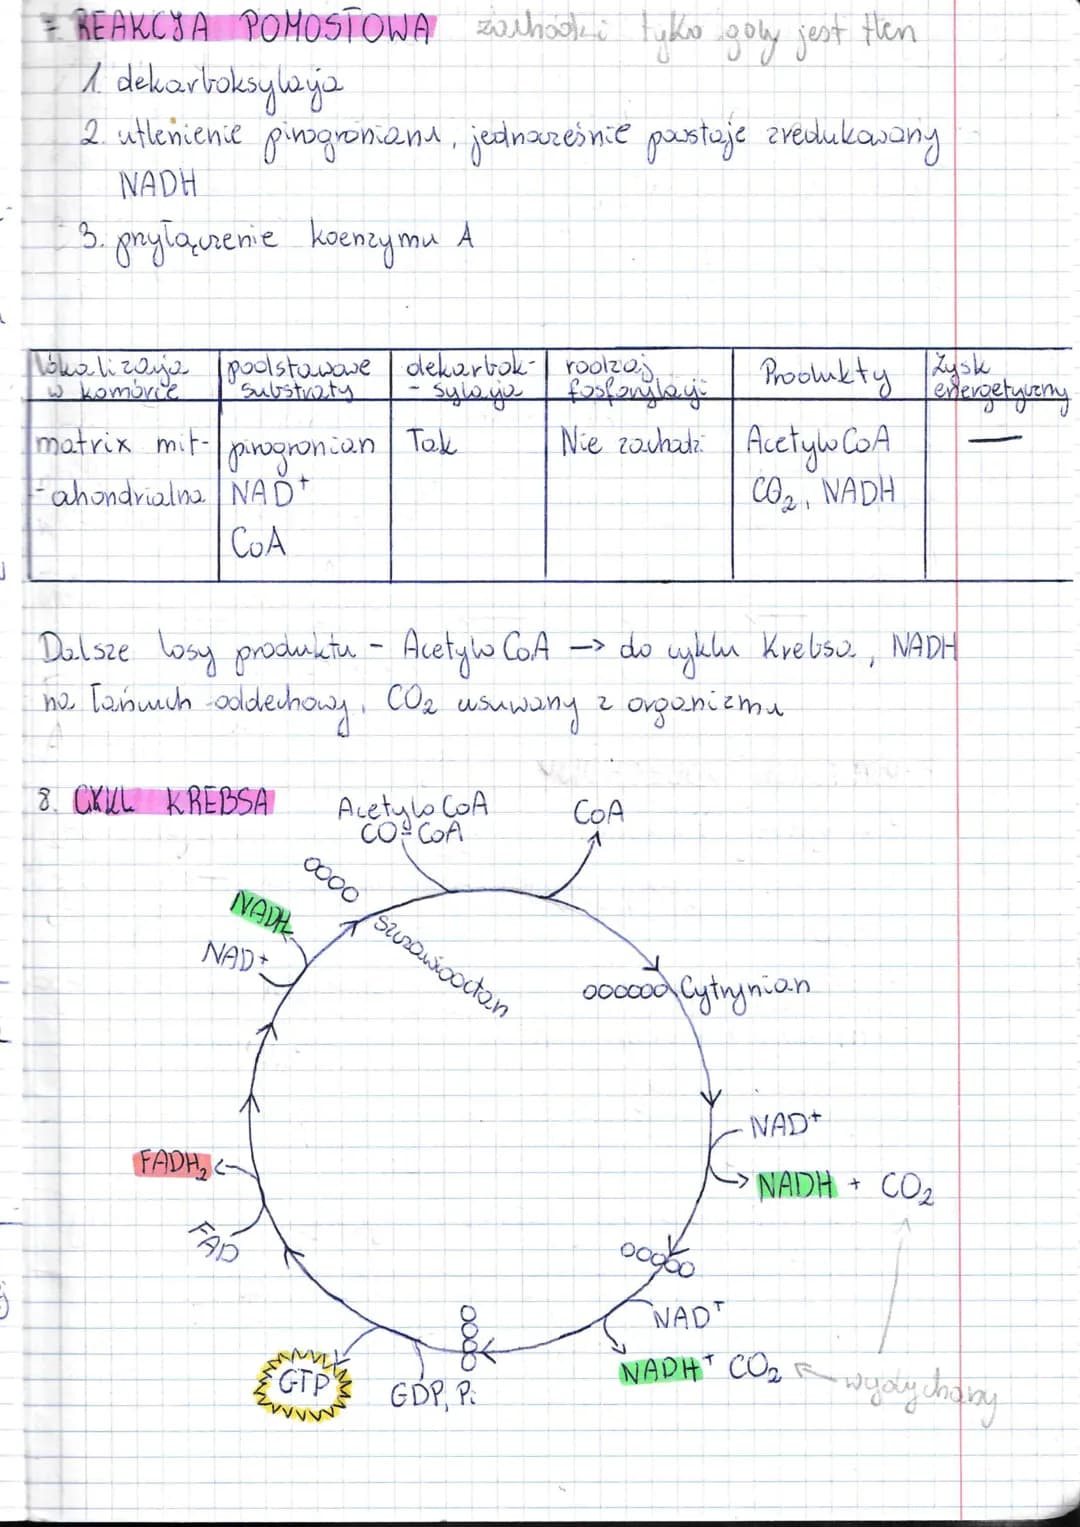 7. REAKCJA POMOSTOWA zachodzi tylko gdy jest tlen
1. dekarboksylacja
2. utlenienie pirogronianu, jednocześnie powstaje zredukowany
NADH
3. przyłączenie koenzymu A
lokalizacja w komórce | podstawowe substraty | dekarbok-sylacja | rodzaj fosforylacji | Produkty | Zysk energetyczny
matrix mit- | pirogronian | Tak | Nie zachodzi | Acetylo CoA | —
-ochondrialna | NAD+ | CO2, NADH
CoA
Dalsze losy produktu - Acetylo CoA → do cyklu Krebsa, NADH
na łańcuch oddechowy, CO2 usuwany z organizmu
8. CYKL KREBSA
Acetylo CoA
CoA
NADH
NAD+
szczawiooctan
Cytrynian
NAD+
NADH + CO2
FADH2
FAD
NAD+
NADH + CO2
wydychany
GTP
GDP, Pi